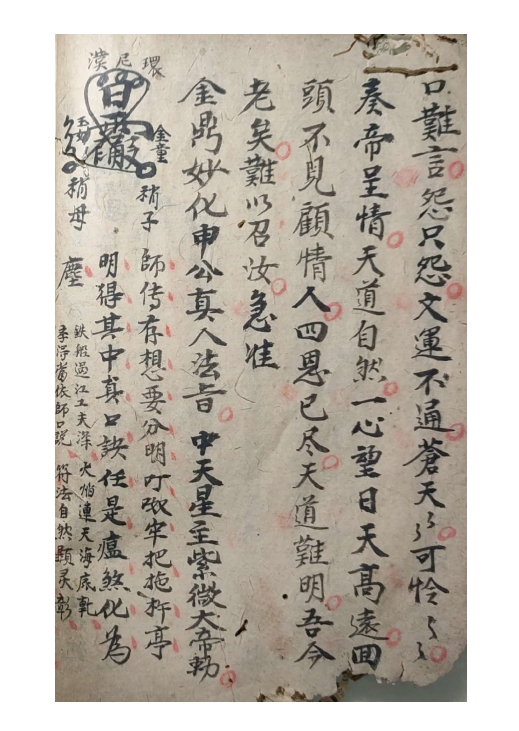 口難言怨只怨文運不通蒼天〻可怜〻〻
奏帝呈情天道自然一心望日天高遠回
頭不見顧情人四恩已尽天道難明吾今
老矣難以召汝急准
金鼎妙化申公真人法旨 中天星主紫微大帝勅
環
尼
濮
金童
玉女
稍子
稍母
師傳存想要分明叮咛牢把拖杆亭
明得其中真口訣任是瘟煞化為
塵
鉄船過江工夫深 火焰連天海底乾
李淂當依師口説 符法自然顯灵彰